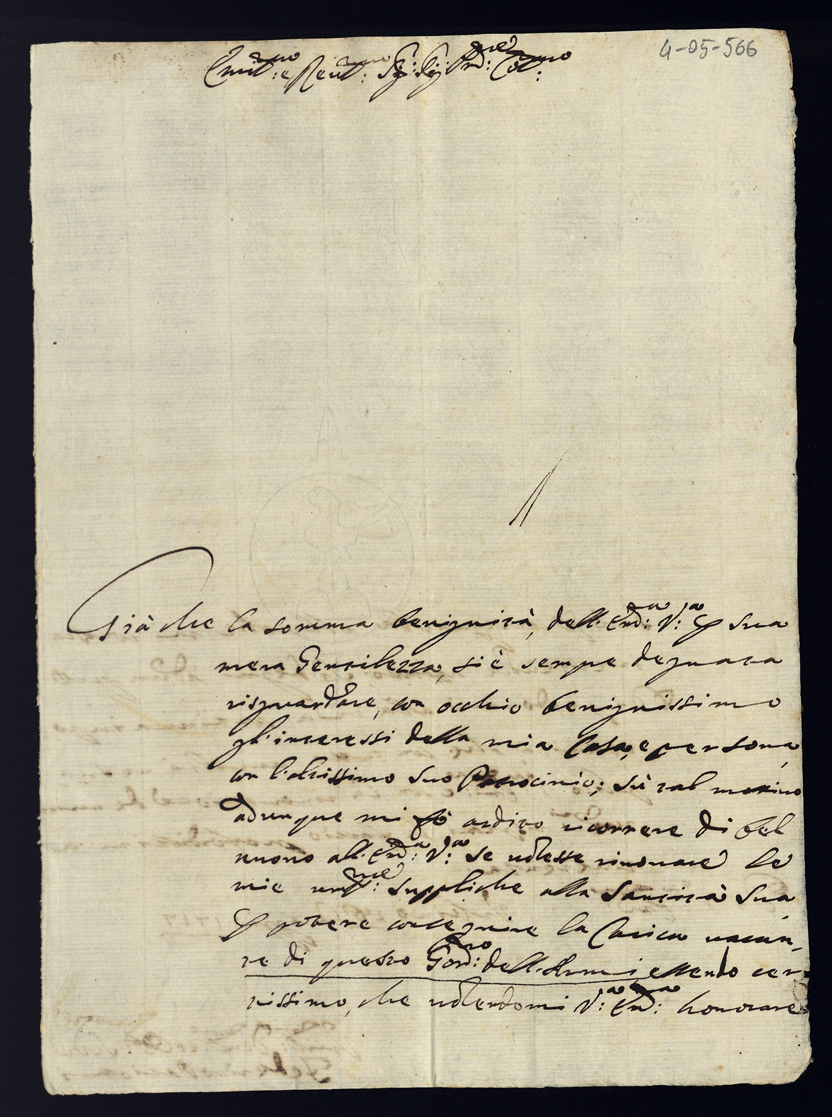 4-05-566
Em.mo e Rev.mo Sig: Sig Prõn: Col.mo
Già che la somma benignità, dell: Em: V:a p sua
mera Gentilezza, si è sempe degnata
risguardare, con occhio benignissimo
gl'interessi della mia Casa, e persona,
con l'altissimo suo Patrocinio; Sù tal motivo
adunque mi fò ardito ricorrere di bel
nuovo all: Em:a V:a se volesse rinovare le
mie um.me suppliche alla Santità Sua
p potere conseguire la Carica vacan-
te di questo Gov:no dell: Armi, essendo cer
tissimo, che volendomi V:a Em:a honorare